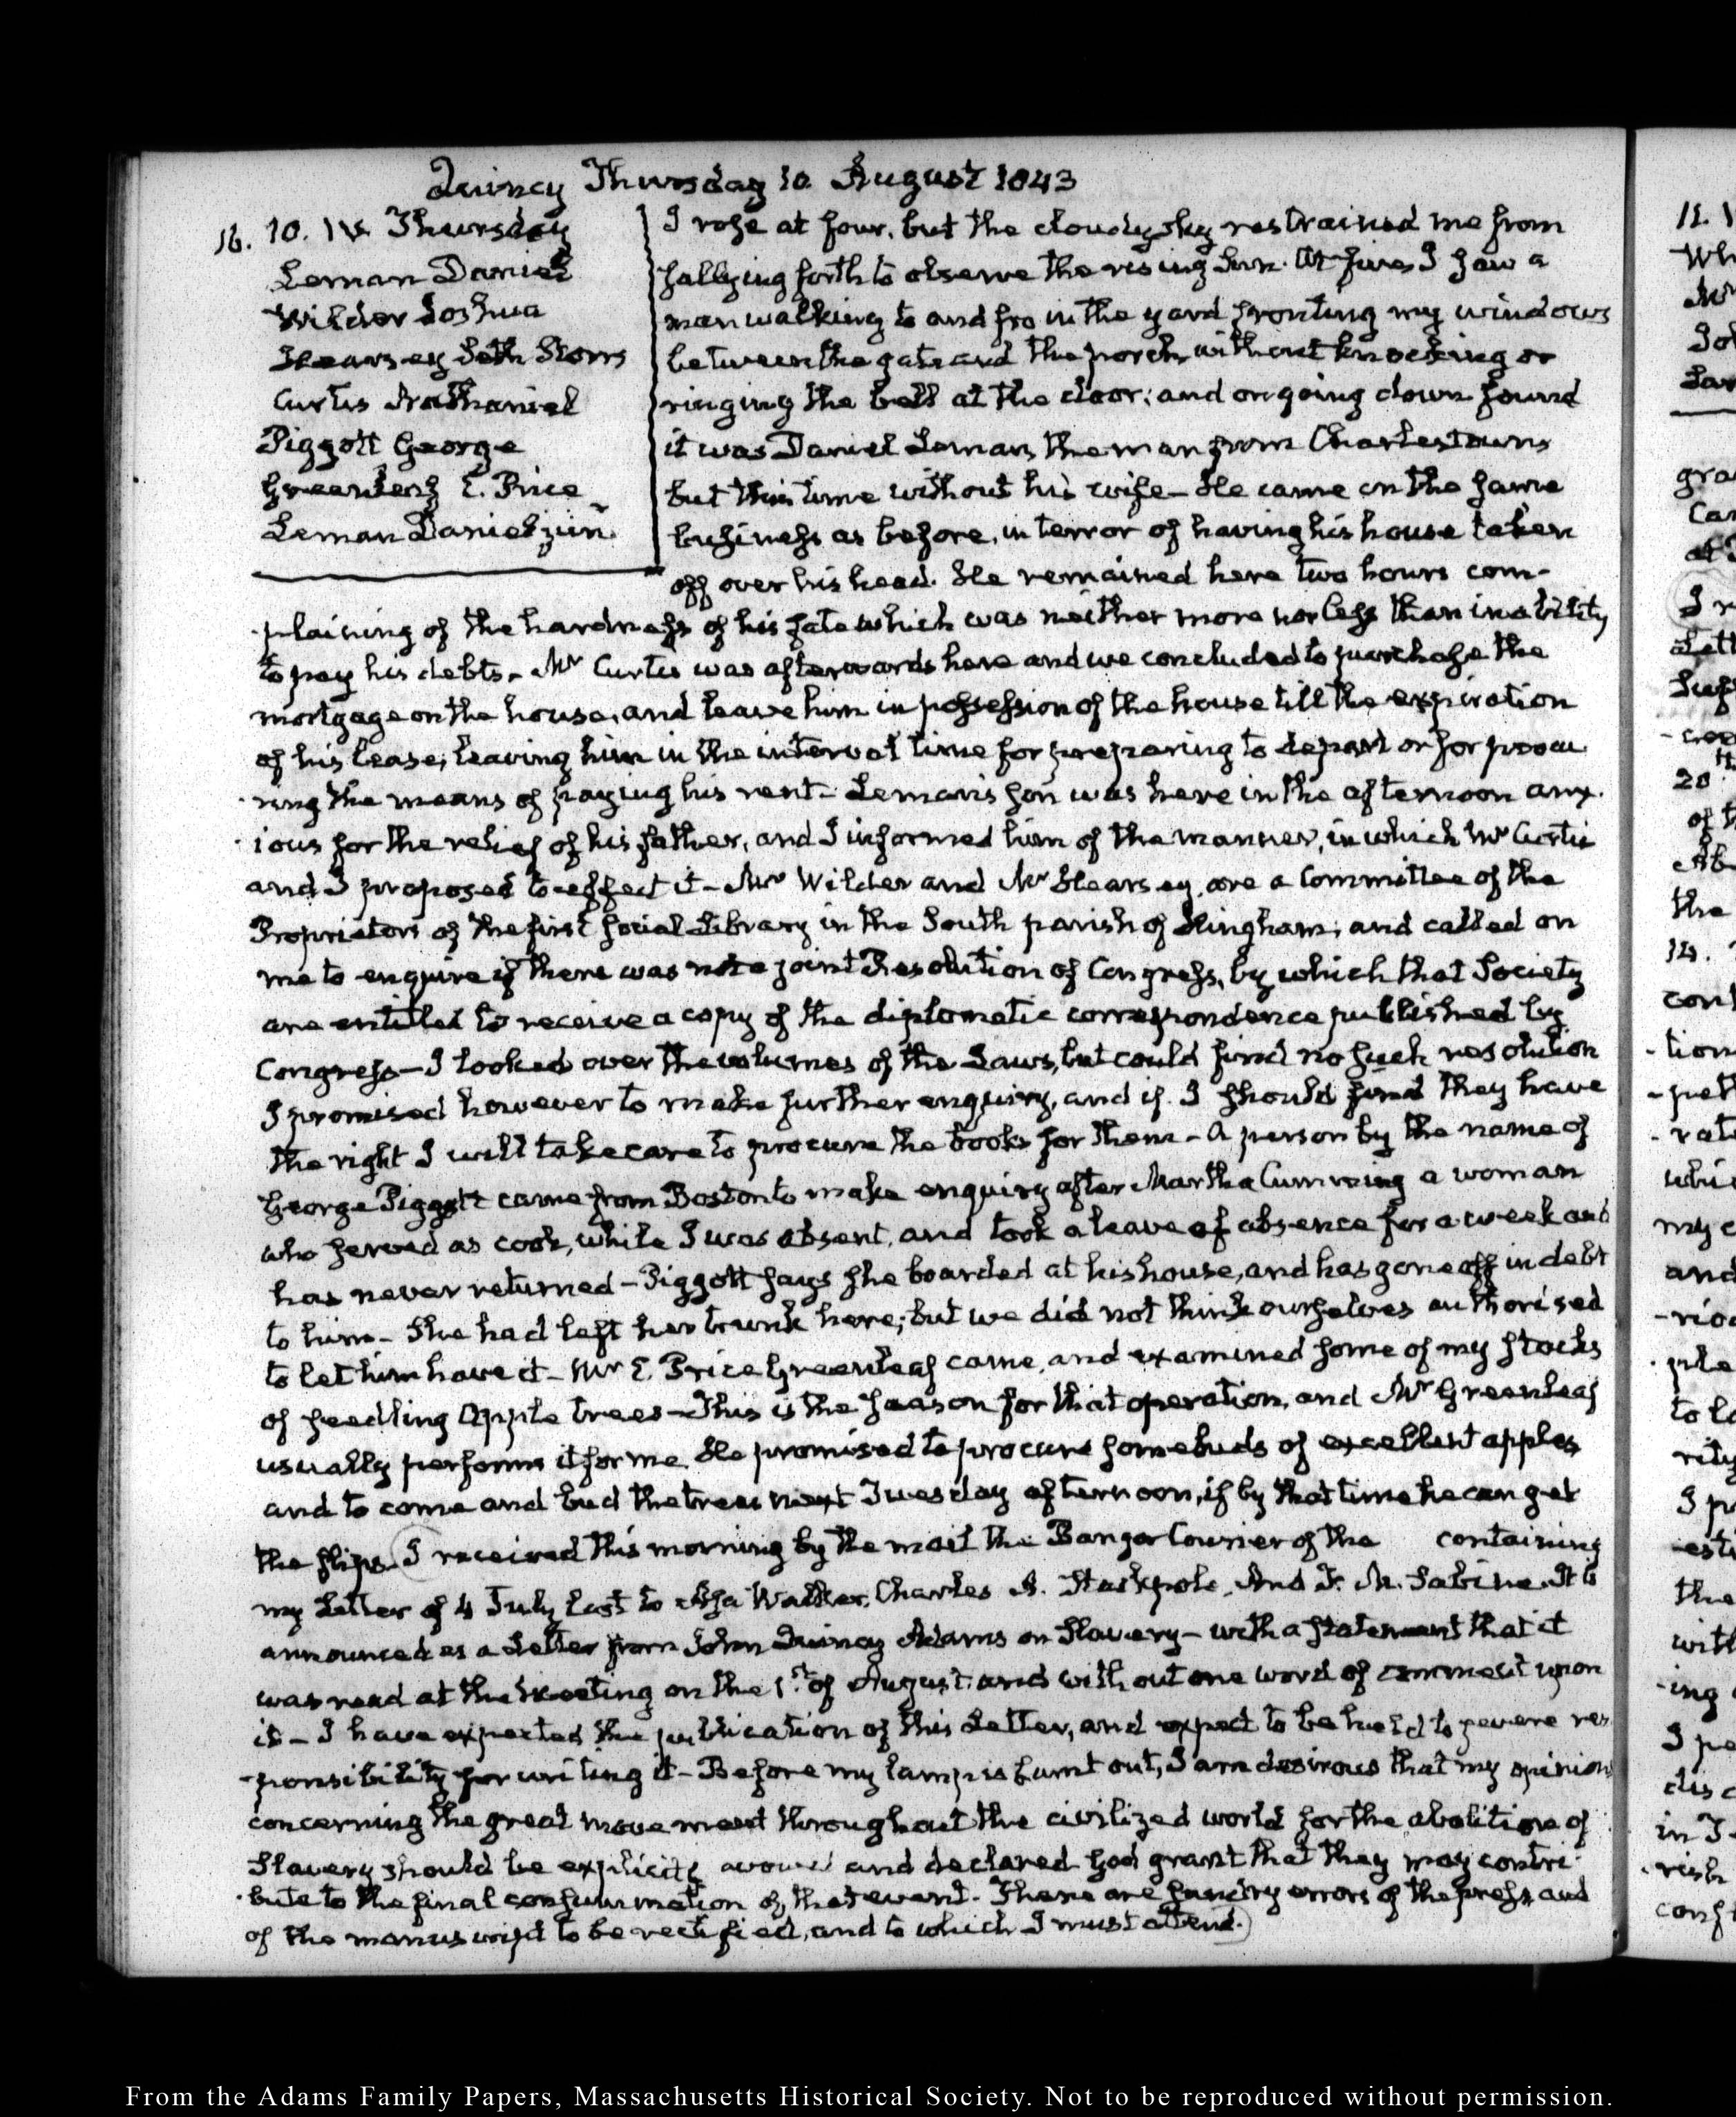 Quincy Thursday 10. August 1843
16. 10. IV. Thursday
Leman Daniel
Wilder Joshua
Hearsey Seth Storrs
Curtis Nathaniel
Piggott George
Greenleaf E. Price
Leman Daniel jun.
I rose at four, but the cloudy sky restrained me from
sallying forth to observe the rising Sun. At five I saw a
man walking to and fro in the yard fronting my windows
between the gate and the porch, without knocking or
ringing the bell at the door; and on going down found
it was Daniel Leman, the man from Charlestown
but this time without his wife— He came on the same
business as before, in terror of having his house taken
off over his head. He remained here two hours com-
-plaining of the hardness of his fate which was neither more nor less than inability
to pay his debts.— Mr Curtis was afterwards here and we concluded to purchase the
mortgage on the house, and leave him in possession of the house till the expiration
of his lease; leaving him in the interval time for preparing to depart or for procu
-ring the means of paying his rent— Leman's son was here in the afternoon anx-
-ious for the relief of his father, and I informed him of the manner, in which Mr Curtis
and I proposed to effect it— Mr Wilder and Mr Hearsey, are a Committee of the
Proprietors of the first social Library in the South parish of Hingham; and called on
me to enquire if there was not a joint Resolution of Congress, by which that Society
are entitled to receive a copy of the diplomatic correspondence published by
Congress— I looked over the volumes of the Laws, but could find no such resolution
I promised however to make further enquiry, and if I should find they have
the right I will take care to procure the books for them— A person by the name of
George Piggott came from Boston to make enquiry after Martha Cumming a woman
who served as cook, while I was absent, and took a leave of absence for a week and
has never returned— Piggott says she boarded at his house, and has gone off in debt
to him— She had left her trunk here; but we did not think ourselves authorised
to let him have it— Mr E. Price Greenleaf came, and examined some of my stocks
of seedling Apple trees— This is the season for that operation, and Mr Greenleaf
usually performs it for me. He promised to procure some buds of excellent apples
and to come and bud the trees next Tuesday afternoon, if by that time he can get
the slips. I received this morning by the mail the Bangor Courier of the containing
my Letter of 4 July last to Asa Walker, Charles A. Stackpole, And F. M. Sabine. It is
announced as a Letter from John Quincy Adams on Slavery— with a statement that it
was read at the meeting on the 1st of August, and without one word of comment upon
it— I have expected the publication of this Letter, and expect to be held to severe res
-ponsibility for writing it— Before my lamp is burnt out, I am desirous that my opinions
concerning the great movement throughout the civilized world for the abolition of
Slavery should be explicitly avowed and declared God grant that they may contri-
-bute to the final consummation of that event. There are sundry errors of the press, and
of the manuscript to be rectified, and to which I must attend.
From the Adams Family Papers, Massachusetts Historical Society. Not to be reproduced without permission.